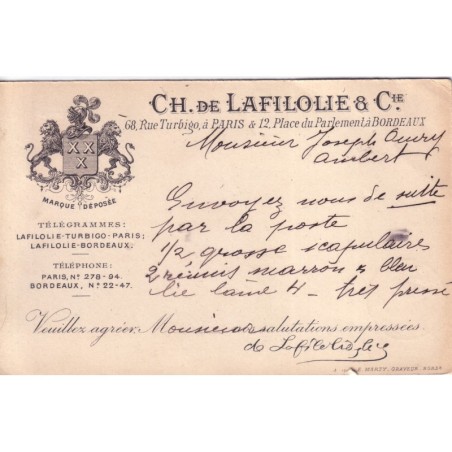 CH. DE LAFILOLIE & CIE
68, Rue Turbigo, à PARIS & 12, Place du Parlement, à BORDEAUX
MARQUE DÉPOSÉE
TÉLÉGRAMMES:
LAFILOLIE-TURBIGO-PARIS;
LAFILOLIE-BORDEAUX.
TÉLÉPHONE:
PARIS, No 278-94.
BORDEAUX, No 22-47.
Monsieur Joseph
Ambert
Envoyez nous de suite
par la poste
1/2 grosse scapulaire
2 marron 3 bleu
lie laine 4 - très pressé
Veuillez agréer, Monsieur salutations empressées.
de Lafilolie
GRAVEUR